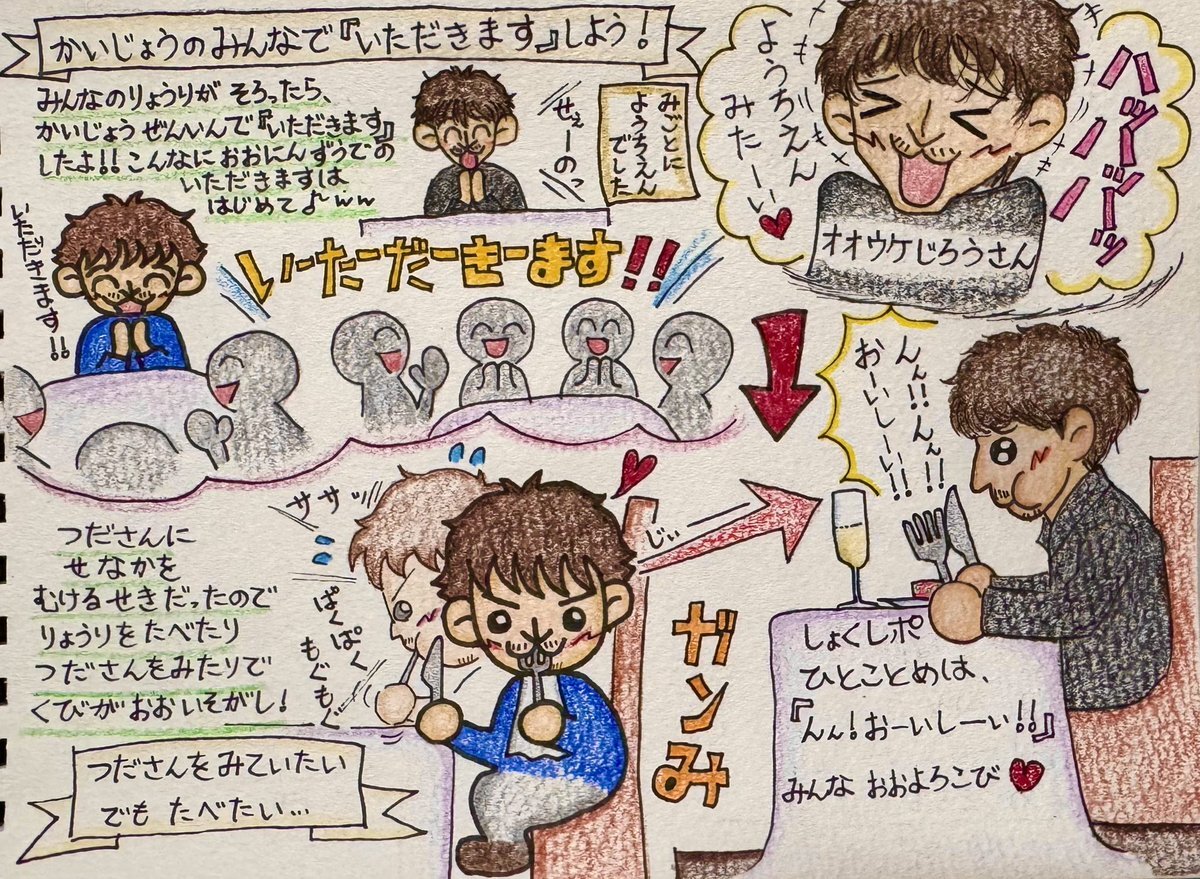 かいじょうのみんなで『いただきます』しよう!
みんなのりょうりが そろったら、
かいじょう ぜんいんで『いただきます』
したよ!! こんなに おおにんずうでの
いただきますは
はじめて♪ww
せぇーのっ
みごとに
ようちえん
でした
ようちえん
みたーい
ハッハッハッハッ
オオウケじろうさん
いただきます!!
いーたーだーきーます!!
んん!!んん!!
おーいしーい!!
つださんに
せなかを
むけるせきだったので
りょうりを たべたり
つださんを みたりで
くびが おおいそがし!
ササッ
ぱくぱく
もぐもぐ
じぃー
ガンみ
つださんを みていたい
でも たべたい…
しょくレポ
ひとことめは、
『んん!おーいしーい!!』
みんな おおよろこび